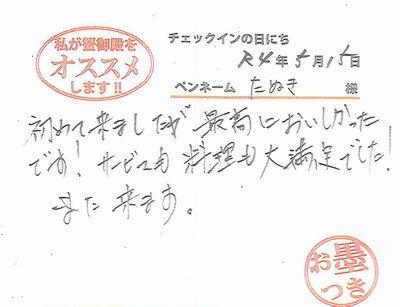 私が蟹御殿を
オススメ
します!!
チェックインの日にち
R4年5月15日
ペンネーム たぬき 様
初めて来ましたが最高においしかった
です!サービスも料理も大満足でした!
また来ます。
お墨
つき